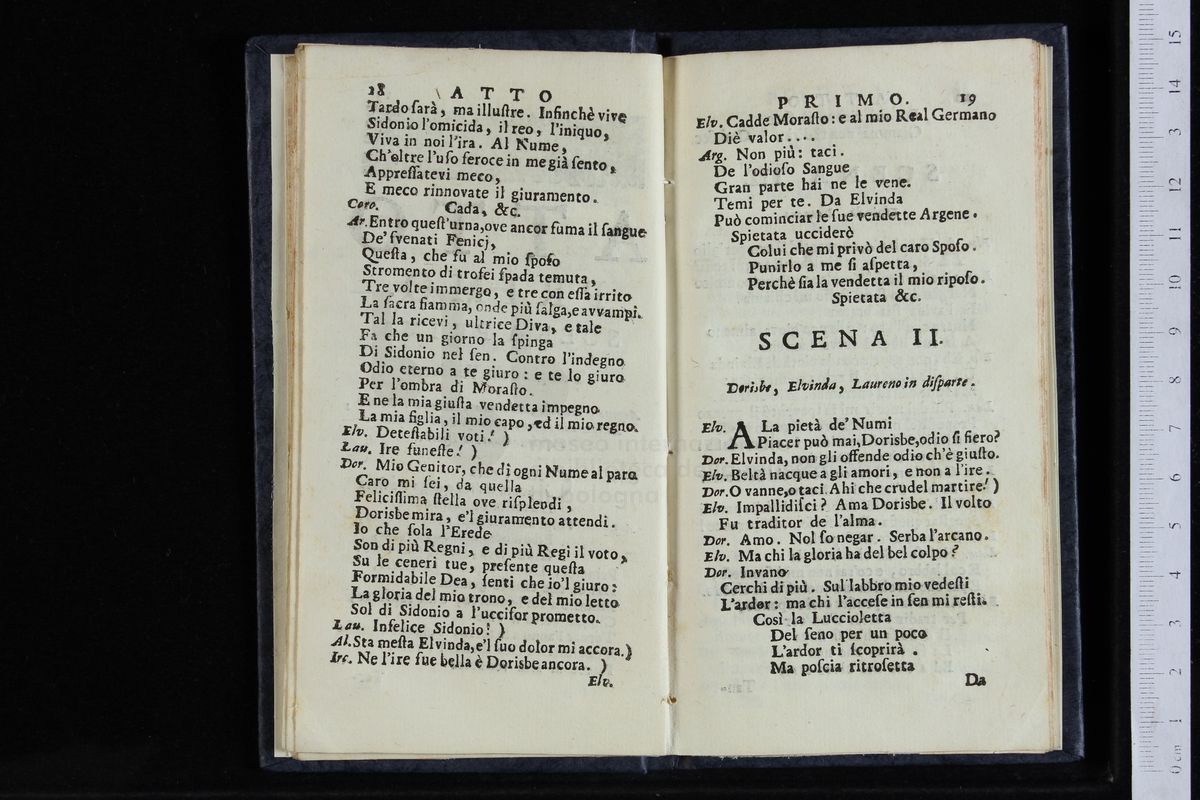 18 ATTO
Tardo sarà, ma illustre. Infinchè vive
Sidonio l'omicida, il reo, l'iniquo,
Viva in noi l'ira. Al Nume,
Ch'oltre l'uso feroce in me già sento,
Appressatevi meco,
E meco rinnovate il giuramento.
Coro. Cada, &c.
Ar. Entro quest'urna, ove ancor fuma il sangue
De' svenati Fenicj,
Questa, che fu al mio sposo
Stromento di trofei spada temuta,
Tre volte immergo, e tre con essa irrito
La sacra fiamma, onde più salga, e avvampi.
Tal la ricevi, ultrice Diva, e tale
Fa che un giorno la spinga
Di Sidonio nel sen. Contro l'indegno
Odio eterno a te giuro: e te lo giuro
Per l'ombra di Morasto.
E ne la mia giusta vendetta impegno
La mia figlia, il mio capo, ed il mio regno.
Elv. Detestabili voti! )
Lau. Ire funeste! )
Dor. Mio Genitor, che di ogni Nume al paro
Caro mi sei, da quella
Felicissima stella ove risplendi,
Dorisbe mira, e'l giuramento attendi.
Io che sola l'Erede
Son di più Regni, e di più Regi il voto,
Su le ceneri tue, presente questa
Formidabile Dea, senti che io'l giuro:
La gloria del mio trono, e del mio letto
Sol di Sidonio a l'uccisor prometto.
Lau. Infelice Sidonio! )
Al. Sta mesta Elvinda, e'l suo dolor mi accora. )
Irc. Ne l'ire sue bella è Dorisbe ancora. )
Elv.
PRIMO. 19
Elv. Cadde Morasto: e al mio Real Germano
Diè valor....
Arg. Non più: taci.
De l'odioso Sangue
Gran parte hai ne le vene.
Temi per te. Da Elvinda
Può cominciar le sue vendette Argene.
Spietata ucciderò
Colui che mi privò del caro Sposo.
Punirlo a me si aspetta,
Perchè sia la vendetta il mio riposo.
Spietata &c.
SCENA II.
Dorisbe, Elvinda, Laureno in disparte.
Elv. A La pietà de' Numi
Piacer può mai, Dorisbe, odio sì fiero?
Dor. Elvinda, non gli offende odio ch'è giusto.
Elv. Beltà nacque a gli amori, e non a l'ire.
Dor. O vanne, o taci. Ahi che crudel martire! )
Elv. Impallidisci? Ama Dorisbe. Il volto
Fu traditor de l'alma.
Dor. Amo. Nol so negar. Serba l'arcano.
Elv. Ma chi la gloria ha del bel colpo?
Dor. Invano
Cerchi di più. Sul labbro mio vedesti
L'ardor: ma chi l'accese in sen mi resti.
Così la Luccioletta
Del seno per un poco
L'ardor ti scoprirà.
Ma poscia ritrosetta
Da